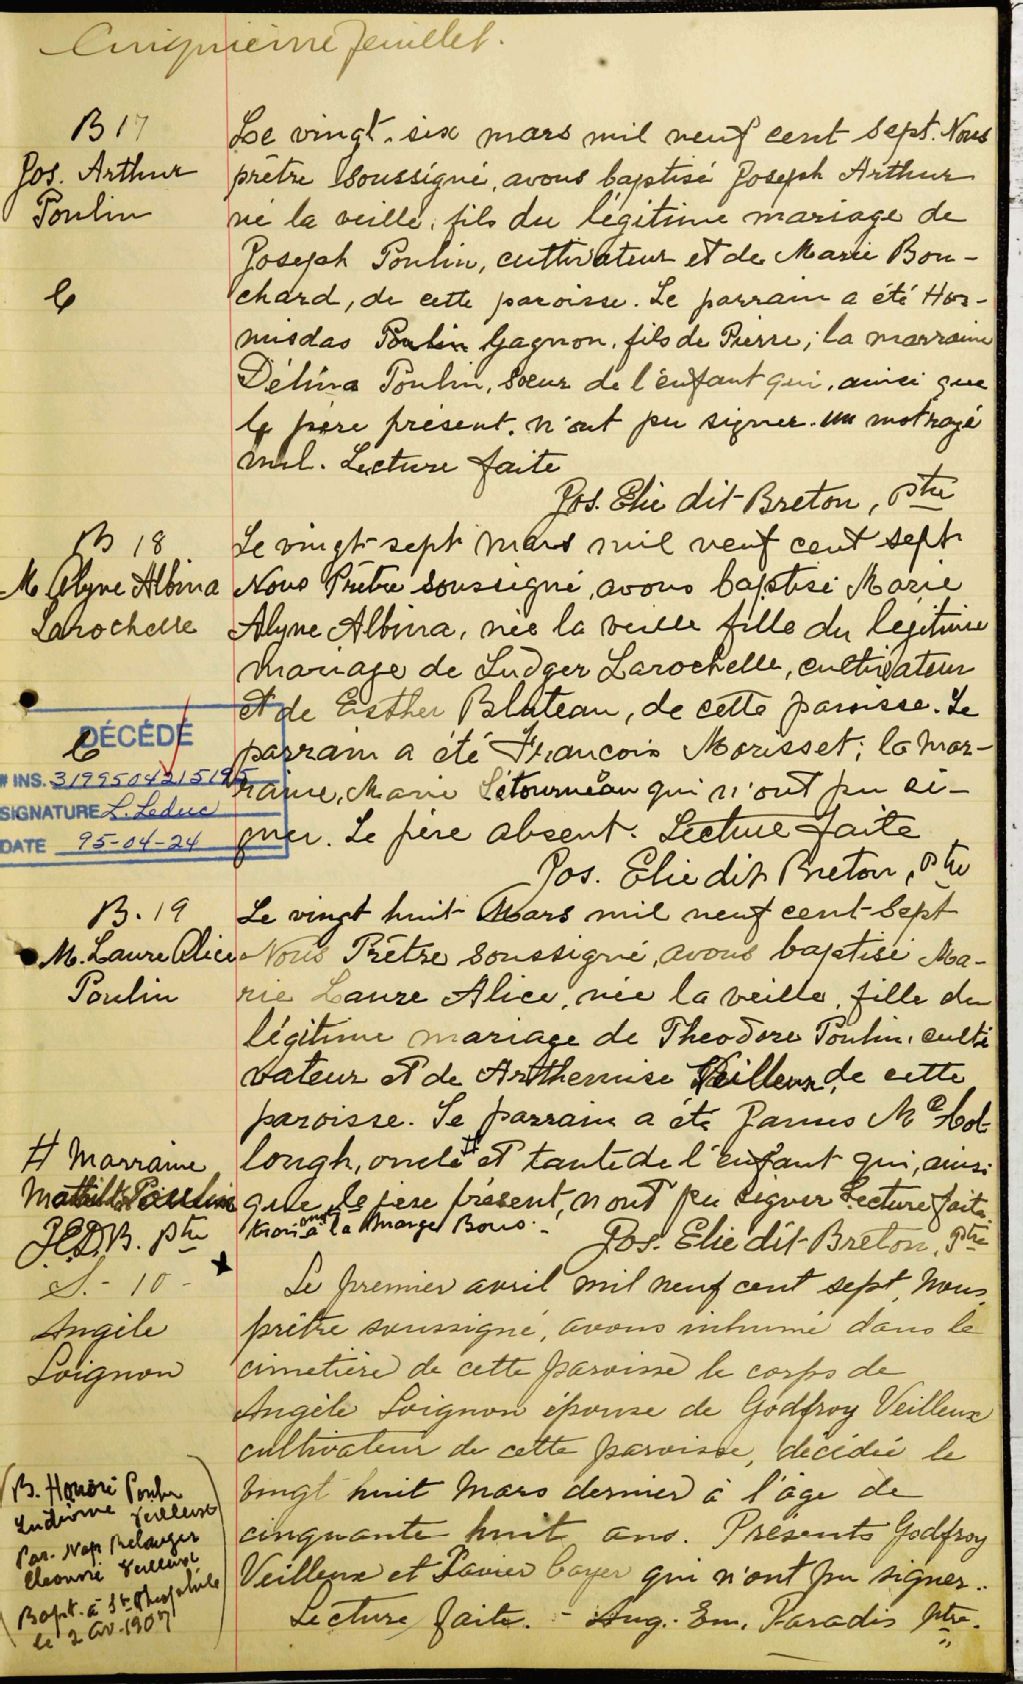 Cinquième feuillet.
B 17
Jos. Arthur
Poulin
C
Le vingt-six mars mil neuf cent sept. Nous
prêtre soussigné, avons baptisé Joseph Arthur
né la veille, fils du légitime mariage de
Joseph Poulin, cultivateur et de Marie Bou-
chard, de cette paroisse. Le parrain a été Hor-
misdas Poulin Gagnon, fils de Pierre; la marraine
Délina Poulin, soeur de l'enfant qui, ainsi que
le père présent, n'ont pu signer. un mot rayé
nul. Lecture faite
Jos. Elie dit Breton, Ptre
B 18
M. Alyne Albina
Larochelle
C
DÉCÉDÉ
# INS. 3199504215195
SIGNATURE L. Leduc
DATE 95-04-24
Le vingt-sept mars mil neuf cent sept
Nous Prêtre soussigné, avons baptisé Marie
Alyne Albina, née la veille fille du légitime
mariage de Ludger Larochelle, cultivateur
et de Esther Bluteau, de cette paroisse. Le
parrain a été Francois Morisset; la mar-
raine, Marie Létourneau qui n'ont pu si-
gner. Le père absent. Lecture faite
Jos. Elie dit Breton, Ptre
B. 19
M. Laure Alice
Poulin
Le vingt huit Mars mil neuf cent sept
Nous Prêtre soussigné, avons baptisé Ma-
rie Laure Alice, née la veille, fille du
légitime mariage de Theodore Poulin, culti
vateur et de Arthemise Veilleux, de cette
paroisse. Le parrain a été James Mc
longh, oncle # et tante de l'enfant qui, ainsi
que le père présent, n'ont pu signer Lecture faite
à la Marge Bons.
Jos. Elie dit Breton, Ptre
# Marraine
Mathilde Poulin
J.E.D.B. ptre
S. - 10 -
Angèle
Loignon
Le premier avril mil neuf cent sept, Nous,
prêtre soussigné, avons inhumé dans le
cimetière de cette paroisse le corps de
Angèle Loignon épouse de Godfroy Veilleux
cultivateur de cette paroisse, décédée le
vingt huit Mars dernier à l'âge de
cinquante huit ans. Présents Godfroy
Veilleux et Xavier Cayer qui n'ont pu signer.
Lecture faite. - Aug. Em. Paradis Ptre.
B. Honoré Poulin
Ludivine Veilleux
Par. Nap Belanger
Eleonore Veilleux
Bapt. à St Theophile
le 2 av. 1907